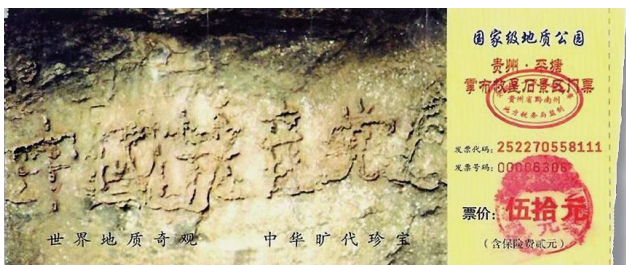 中国共产党
世界地质奇观 中华旷代珍宝
国家级地质公园
贵州·平塘
掌布救星石景区门票
贵州省黔南州
地方税务局监制
发票代码:252270558111
发票号码:00006306
票价:伍拾元
(含保险费贰元)